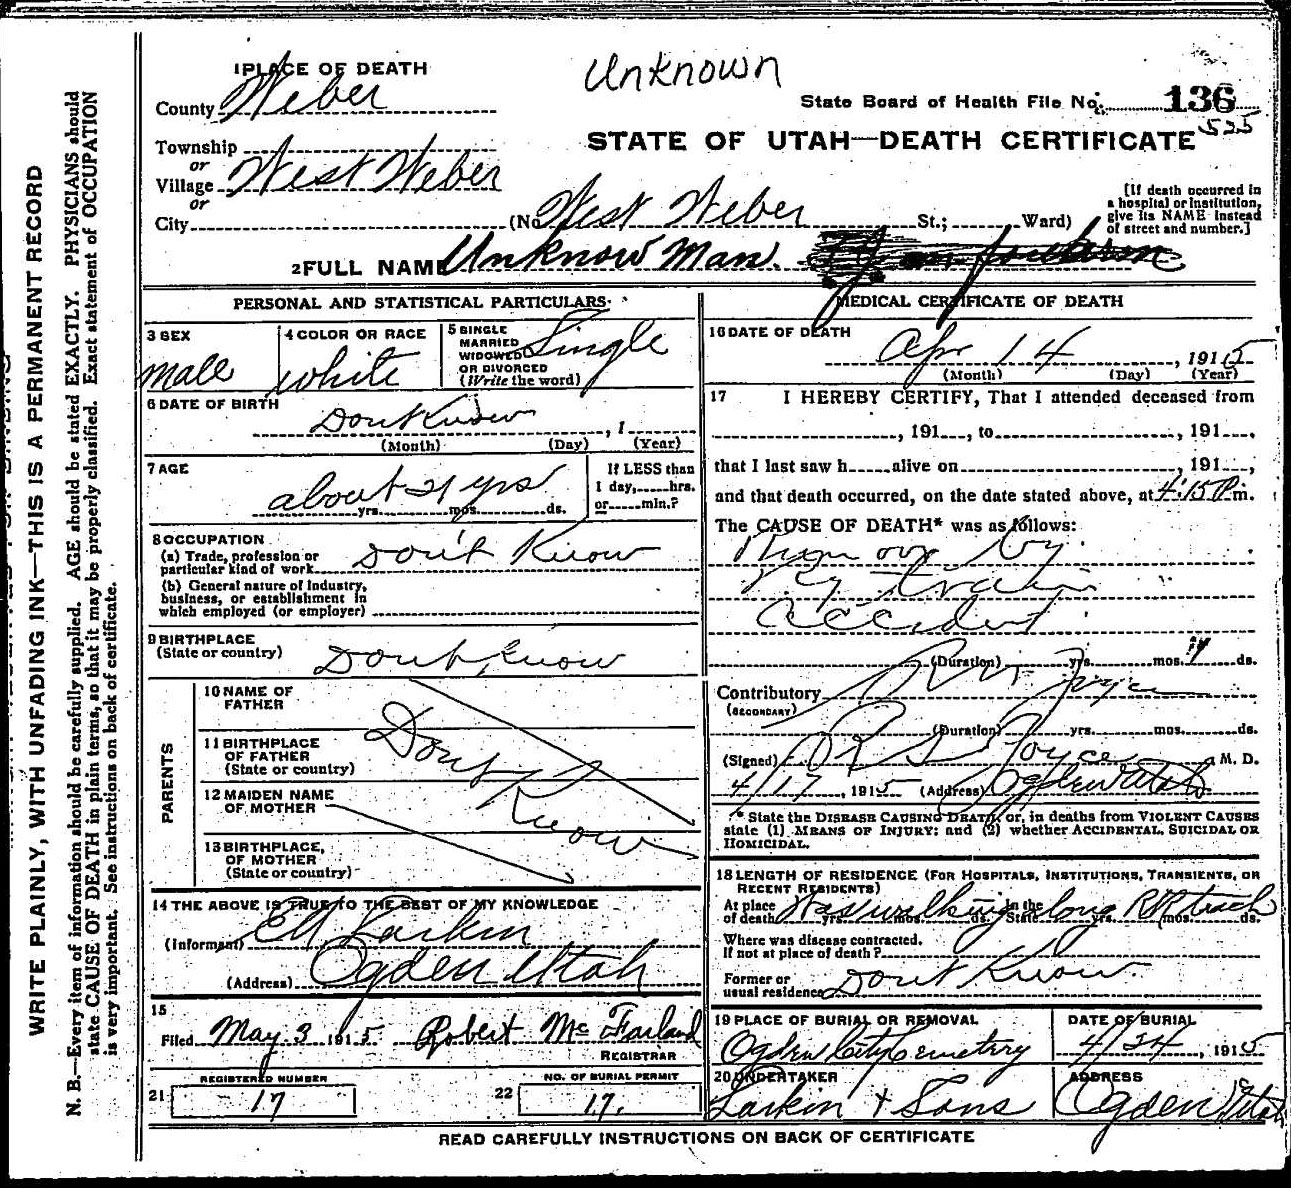 Unknown
1 PLACE OF DEATH
County Weber
State Board of Health File No. 136
525
Township
or
Village West Weber
or
City
STATE OF UTAH—DEATH CERTIFICATE
(No. West Weber St.; Ward)
[If death occurred in
a hospital or institution,
give its NAME instead
of street and number.]
2 FULL NAME Unknow Man.
PERSONAL AND STATISTICAL PARTICULARS
3 SEX
male
4 COLOR OR RACE
white
5 SINGLE
MARRIED
WIDOWED
OR DIVORCED
(Write the word)
Single
6 DATE OF BIRTH
Dont Know , 1
(Month) (Day) (Year)
7 AGE
about 21 yrs
yrs. mos. ds.
If LESS than
1 day, hrs.
or min.?
8 OCCUPATION
(a) Trade, profession or
particular kind of work Don't Know
(b) General nature of industry,
business, or establishment in
which employed (or employer)
9 BIRTHPLACE
(State or country) Dont Know
PARENTS
10 NAME OF
FATHER
11 BIRTHPLACE
OF FATHER
(State or country)
12 MAIDEN NAME
OF MOTHER
13 BIRTHPLACE,
OF MOTHER
(State or country)
Dont Know
14 THE ABOVE IS TRUE TO THE BEST OF MY KNOWLEDGE
(Informant) Larkin
(Address) Ogden Utah
15
Filed May 3 1915 Robert McFarland
REGISTRAR
21 REGISTERED NUMBER
17
22 NO. OF BURIAL PERMIT
17.
MEDICAL CERTIFICATE OF DEATH
16 DATE OF DEATH
Apr 14 , 1915
(Month) (Day) (Year)
17 I HEREBY CERTIFY, That I attended deceased from
, 191 , to , 191 ,
that I last saw h alive on , 191 ,
and that death occurred, on the date stated above, at 4:15 P m.
The CAUSE OF DEATH* was as follows:
Run over by
Ry train
accident
(Duration) yrs. mos. ds.
Contributory
(SECONDARY)
(Duration) yrs. mos. ds.
(Signed) Joyce M. D.
4/17, 1915 (Address) Ogden Utah
* State the DISEASE CAUSING DEATH, or, in deaths from VIOLENT CAUSES
state (1) MEANS OF INJURY; and (2) whether ACCIDENTAL, SUICIDAL OR
HOMICIDAL.
18 LENGTH OF RESIDENCE (FOR HOSPITALS, INSTITUTIONS, TRANSIENTS, OR
RECENT RESIDENTS)
At place
of death yrs. mos. ds. In the
State yrs. mos. ds.
Was walking long RR track
Where was disease contracted,
If not at place of death?
Former or
usual residence Dont Know.
19 PLACE OF BURIAL OR REMOVAL
Ogden City Cemetery
DATE OF BURIAL
4/24, 1915
20 UNDERTAKER
Larkin & Sons
ADDRESS
Ogden Utah
READ CAREFULLY INSTRUCTIONS ON BACK OF CERTIFICATE
WRITE PLAINLY, WITH UNFADING INK—THIS IS A PERMANENT RECORD
N. B.—Every item of information should be carefully supplied. AGE should be stated EXACTLY. PHYSICIANS should
state CAUSE OF DEATH in plain terms, so that it may be properly classified. Exact statement of OCCUPATION
is very important. See instructions on back of certificate.